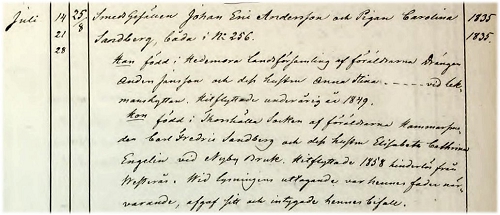 Juli 14 25/8 Smedsgesällen Johan Eric Andersson och Pigan Carolina 1835
21 Sandberg, båda i N: 256. 1835
28 Han född i Hedemora Landsförsamling af föräldrarna Drängen
Anders Jansson och dess hustru Anna Stina ——— vid Lek-
manshyttan. Hitflyttade underårig år 1849.
Hon född i Thorshälla Socken af föräldrarna Hammarsme-
den Carl Fredric Sandberg och dess hustru Elisabeth Cathrina
Engelin vid Nyby Bruk. Hitflyttade 1858 hinderlös från
Westerås. Wid Lysningens uttagande var hennes fader när-
varande, afgaf sitt och intygade hennes bifall.